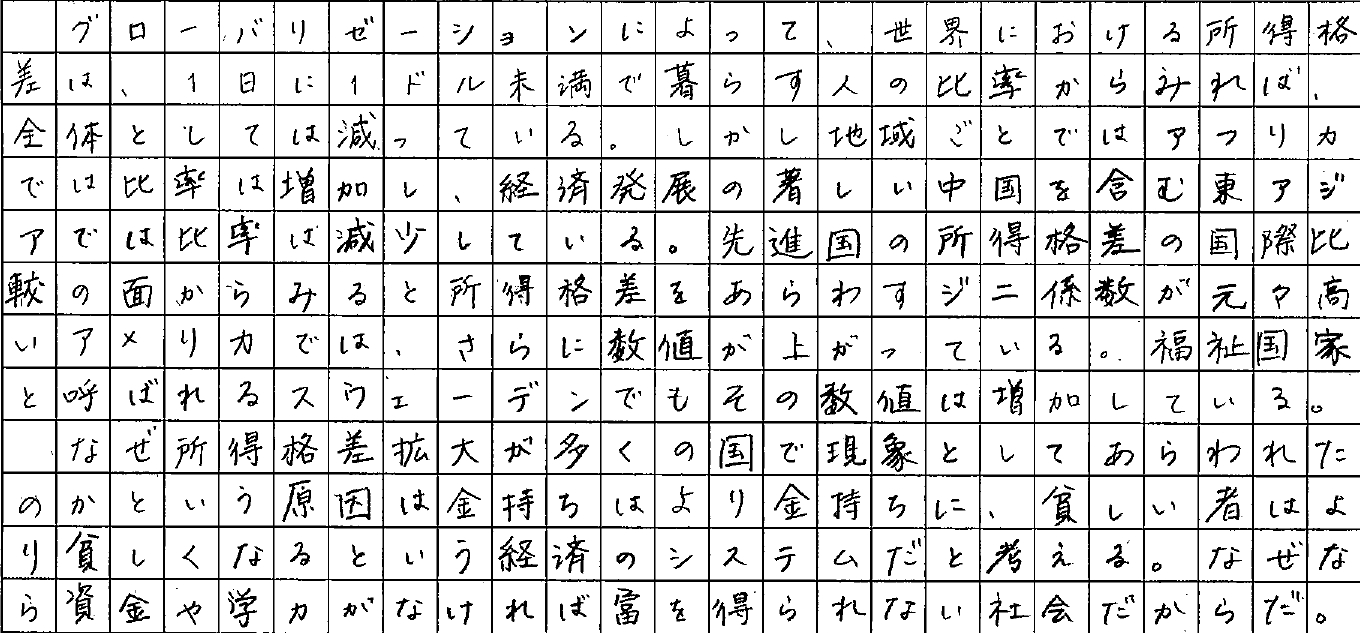 グローバリゼーションによって、世界における所得格
差は、1日に1ドル未満で暮らす人の比率からみれば、
全体としては減っている。しかし地域ごとではアフリカ
では比率は増加し、経済発展の著しい中国を含む東アジ
アでは比率は減少している。先進国の所得格差の国際比
較の面からみると所得格差をあらわすジニ係数が元々高
いアメリカでは、さらに数値が上がっている。福祉国家
と呼ばれるスウェーデンでもその数値は増加している。
なぜ所得格差拡大が多くの国で現象としてあらわれた
のかという原因は金持ちはより金持ちに、貧しい者はよ
り貧しくなるという経済のシステムだと考える。なぜな
ら資金や学力がなければ富を得られない社会だからだ。